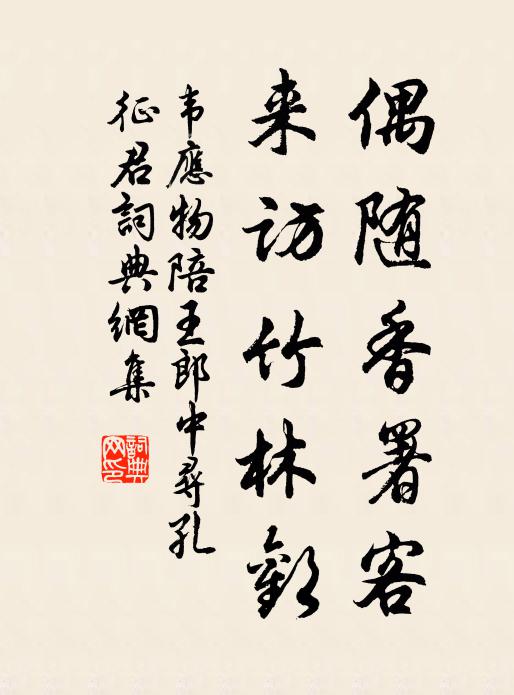 偶随香署客
来访竹林歡
韦應物陪王郎中尋孔
征君詞典網集
詞典网印